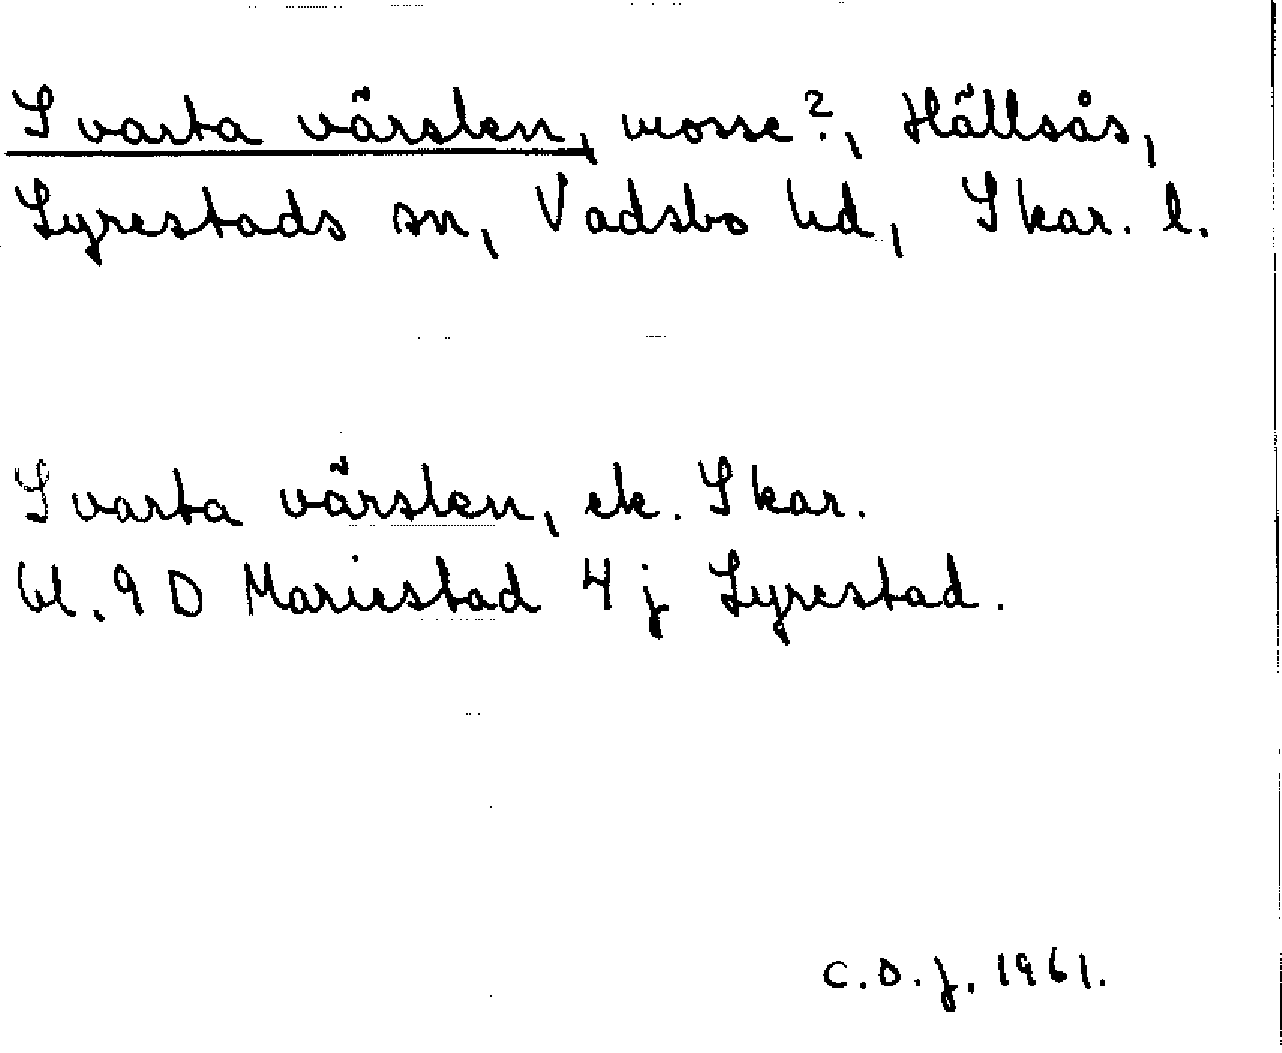 Svarta värsten, mosse?, Hällsås,
Lyrestads sn, Vadsbo hd, Skar. l.
Svarta värsten, ek. Skar.
bl. 9 D Mariestad 4 j Lyrestad.
C.O.J. 1961.